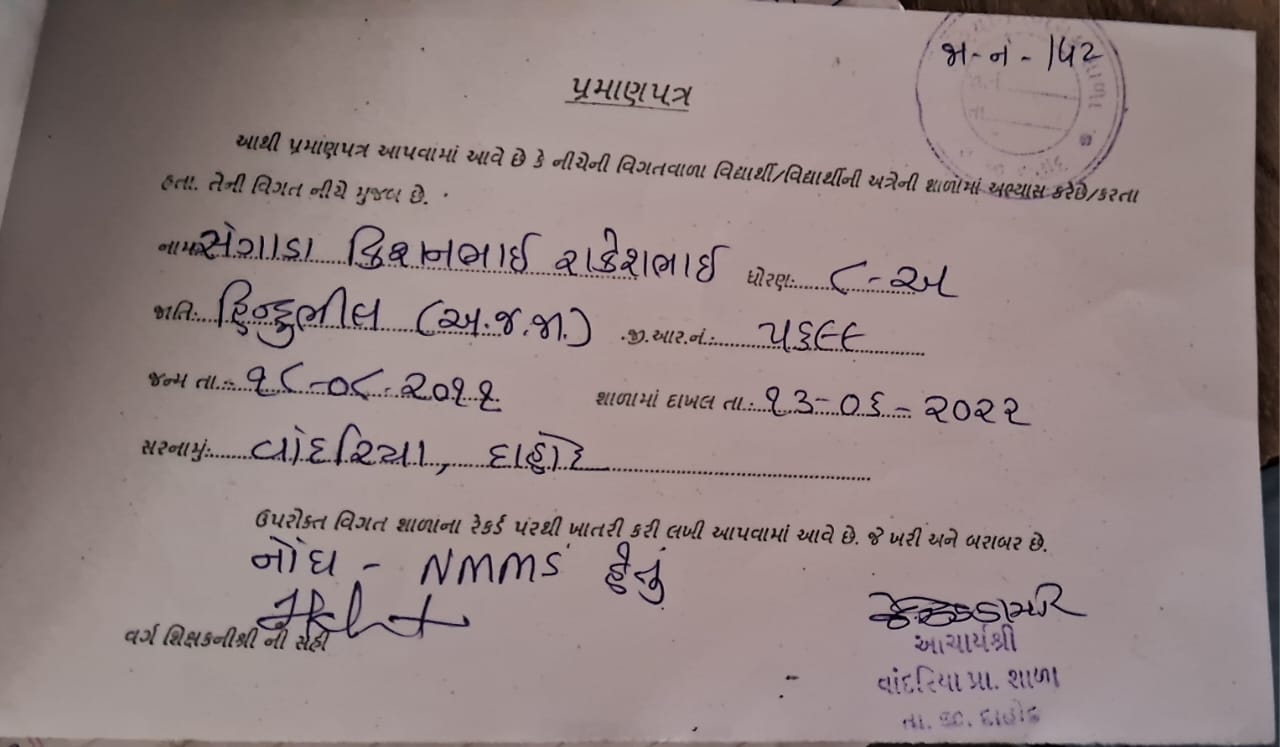 જા-નં - ૧૫૨
પ્રમાણપત્ર
આથી પ્રમાણપત્ર આપવામાં આવે છે કે નીચેની વિગતવાળા વિદ્યાર્થી/વિદ્યાર્થીની અત્રેની શાળામાં અભ્યાસ કરેછે/કરતા
હતા. તેની વિગત નીચે મુજબ છે.
નામ સંગાડા કિશનભાઈ રાકેશભાઈ ધોરણ:..... ૮-અ
જાતિ:.... હિન્દુભીલ (અ.જ.જા.) .જી.આર.નં.:...... ૫૬૯૯
જન્મ તા.:- ૧૮-૦૮-૨૦૧૧ શાળામાં દાખલ તા.: ૧૩-૦૬-૨૦૨૨
સરનામું:...... વાંદરિયા, દાહોદ
ઉપરોક્ત વિગત શાળાના રેકર્ડ પરથી ખાતરી કરી લખી આપવામાં આવે છે. જે ખરી અને બરાબર છે.
નોંધ - NMMS હેતું
વર્ગ શિક્ષકનીશ્રી ની સહી
આચાર્યશ્રી
વાંદરિયા પ્રા. શાળા
તા. જી. દાહોદ